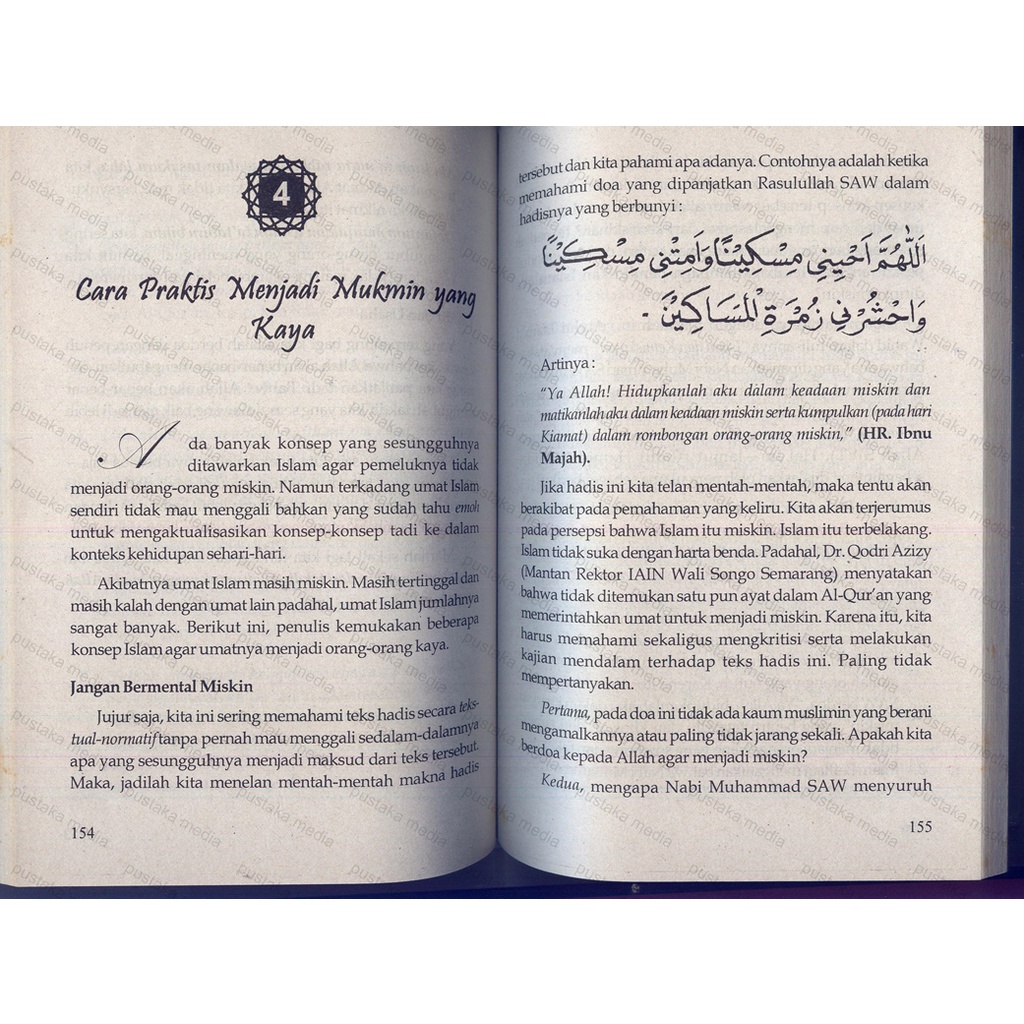 4
Cara Praktis Menjadi Mukmin yang
Kaya
Ada banyak konsep yang sesungguhnya
ditawarkan Islam agar pemeluknya tidak
menjadi orang-orang miskin. Namun terkadang umat Islam
sendiri tidak mau menggali bahkan yang sudah tahu emoh
untuk mengaktualisasikan konsep-konsep tadi ke dalam
konteks kehidupan sehari-hari.
Akibatnya umat Islam masih miskin. Masih tertinggal dan
masih kalah dengan umat lain padahal, umat Islam jumlahnya
sangat banyak. Berikut ini, penulis kemukakan beberapa
konsep Islam agar umatnya menjadi orang-orang kaya.
Jangan Bermental Miskin
Jujur saja, kita ini sering memahami teks hadis secara teks-
tual-normatif tanpa pernah mau menggali sedalam-dalamnya
apa yang sesungguhnya menjadi maksud dari teks tersebut.
Maka, jadilah kita menelan mentah-mentah makna hadis
154
tersebut dan kita pahami apa adanya. Contohnya adalah ketika
memahami doa yang dipanjatkan Rasulullah SAW dalam
hadisnya yang berbunyi :
اَللّٰهُمَّ اَحْيِنِى مِسْكِيْنًا وَاَمِتْنِى مِسْكِيْنًا
وَاحْشُرْنِى زُمْرَةِ الْمَسَاكِيْنَ -
Artinya :
“Ya Allah! Hidupkanlah aku dalam keadaan miskin dan
matikanlah aku dalam keadaan miskin serta kumpulkan (pada hari
Kiamat) dalam rombongan orang-orang miskin,” (HR. Ibnu
Majah).
Jika hadis ini kita telan mentah-mentah, maka tentu akan
berakibat pada pemahaman yang keliru. Kita akan terjerumus
pada persepsi bahwa Islam itu miskin. Islam itu terbelakang.
Islam tidak suka dengan harta benda. Padahal, Dr. Qodri Azizy
(Mantan Rektor IAIN Wali Songo Semarang) menyatakan
bahwa tidak ditemukan satu pun ayat dalam Al-Qur’an yang
memerintahkan umat untuk menjadi miskin. Karena itu, kita
harus memahami sekaligus mengkritisi serta melakukan
kajian mendalam terhadap teks hadis ini. Paling tidak
mempertanyakan.
Pertama, pada doa ini tidak ada kaum muslimin yang berani
mengamalkannya atau paling tidak jarang sekali. Apakah kita
berdoa kepada Allah agar menjadi miskin?
Kedua, mengapa Nabi Muhammad SAW menyuruh
155
pustaka media